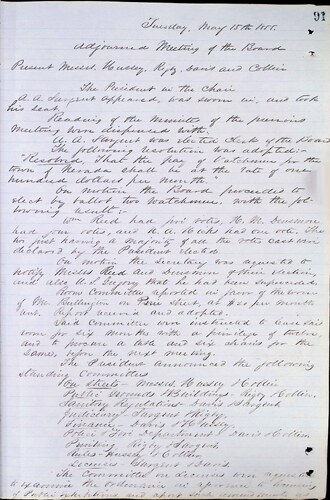 91
Tuesday, May 15th
Adjourned Meeting of the Board
Present Messrs. Hussey, Rigby, Davis and Collin
The President in the Chair
A. A. Sargent appeared, was sworn in, and took
his seat.
Reading of the Minutes of the previous
Meeting was dispensed with.
A. A. Sargent was elected Clerk of the Board
The following resolution was adopted:-
"Resolved, That the pay of Watchmen for the
town of Nevada shall be at the rate of one
hundred dollars per month.
On motion the Board proceeded to
elect by ballot two Watchmen, with the fol-
lowing result:-
Wm Reed had five votes, H. M. Dinsmore
had four votes, and had one vote. The
two first having a majority of all the votes cast were
declared by the President elected.
On motion the Secretary was requested to
notify Messrs Reed and Dinsmore of their election,
and also that he had been superseded.
Room Committee reported in favor of the room
of Mr. on Pine Street, at $20 per month
rent. Report received and adopted.
Said Committee were instructed to lease said
room for six months with a privilege of twelve,
and to procure a table and six chairs for the
same, upon the next meeting.
The President announced the following
Standing Committees
On Streets - Messrs. Hussey & Collin
Public Grounds & Buildings - Rigby & Collin
Sanitary Regulations - Davis & Sargent
Judiciary - Sargent & Rigby
Finance - Davis & Hussey
Police & Fire Department - Davis & Collin
Printing Rigby & Sargent
Rules - Hussey & Collin
Licenses - Sargent & Davis
The Committee on were required
to examine the ordinance in
of